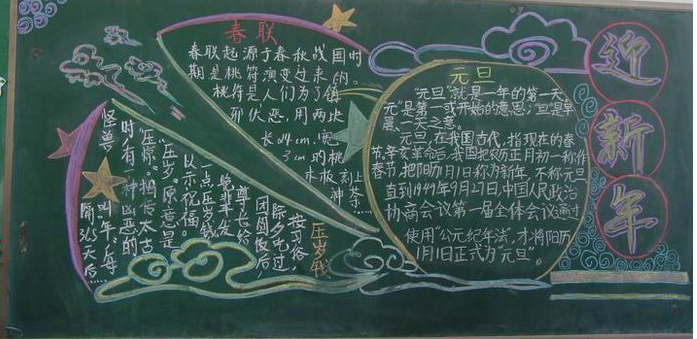 春联
春联起源于春秋战国时
期是桃符演变过来的。
桃符是人们为了镇
邪伏恶,用两块
长04cm,宽
3cm的桃
木板,刻
上荼
神
元旦
“元旦”就是一年的第一天
元”是第一或开始的意思;旦是早
晨一天之意。
元旦,在我国古代,指现在的春
节,辛亥革命后,我国把农历正月初一称作
春节,把阳历1月1日称为新年,不称元旦
直到1949年9月27日,中国人民政治
协商会议第一届全体会议通过
使用“公元纪年法,才将阳历
1月1日正式为“元旦”。
迎
新
年
压岁钱
按习俗,
除夕吃过
团圆饭后
尊长会给
晚辈分发
一点压岁钱
以示祝福,
“压岁”原意是
“压惊”。相传太古
时,有一种凶恶的
怪兽
叫“年”,每
隔365天后…